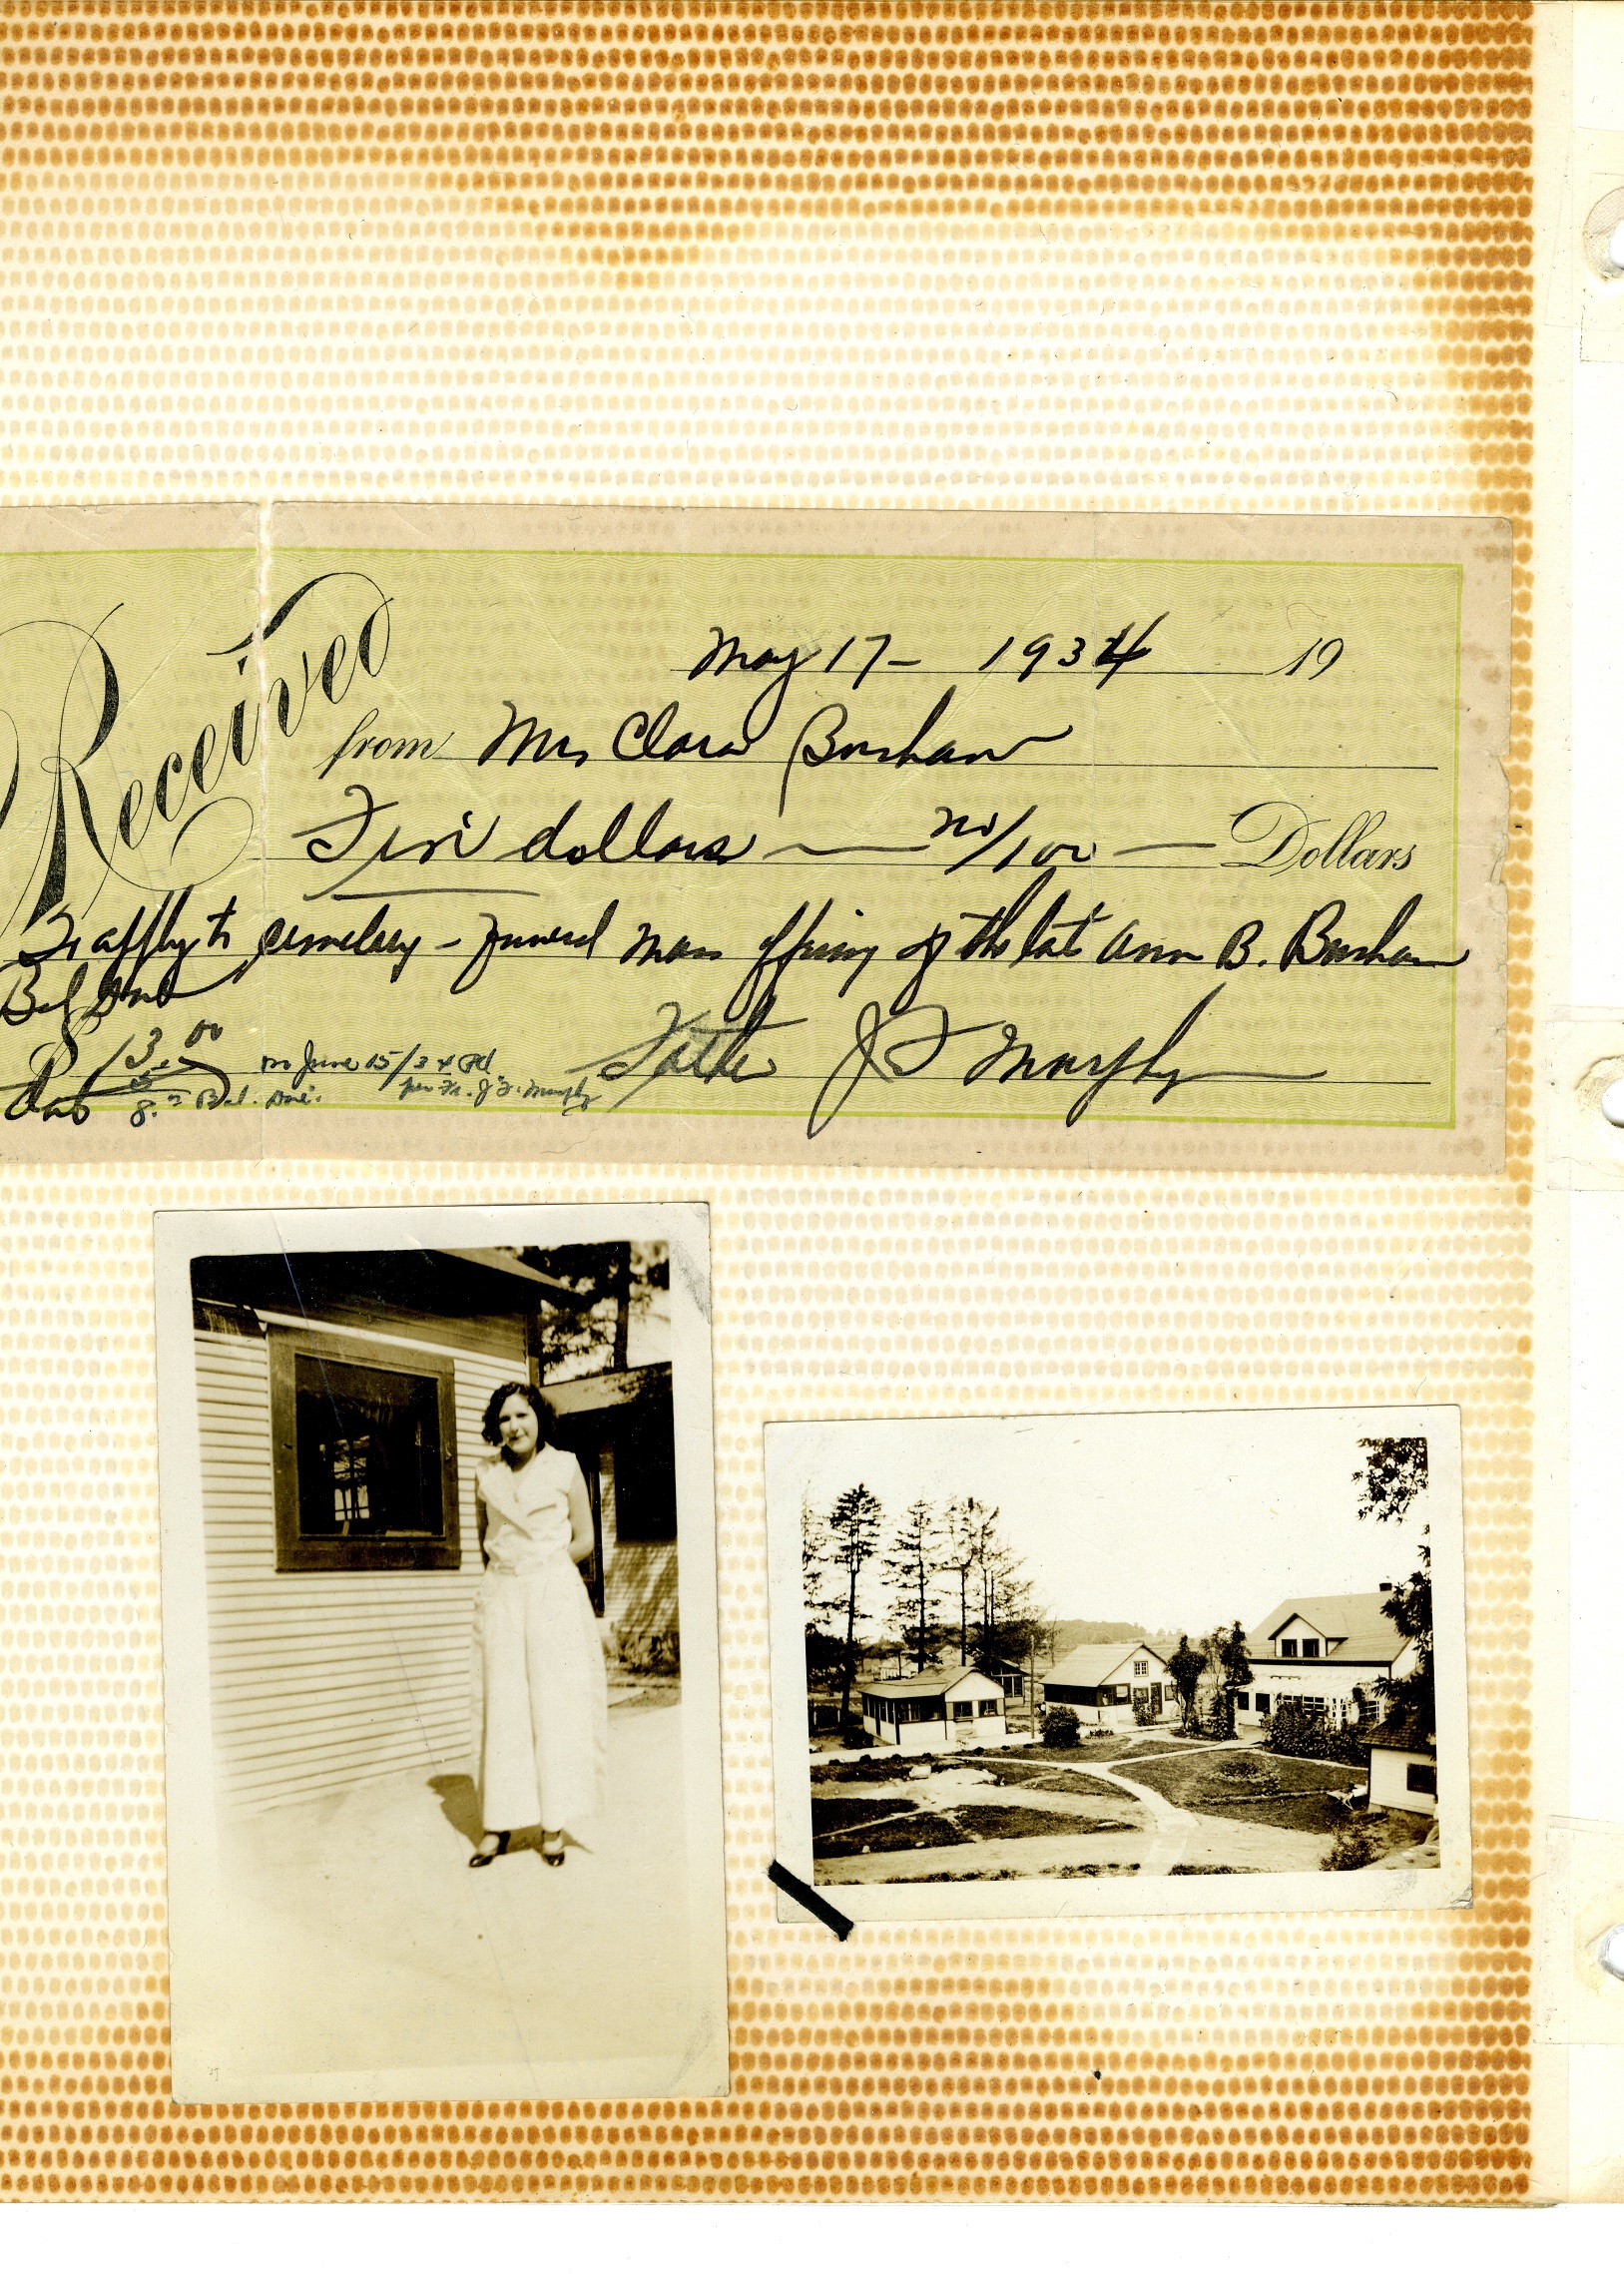 Received
May 17 - 1934 19
from Mrs Clara Bushaw
Five dollars — no/100 — Dollars
To apply to cemetery - funeral mass offering of the late Ann B. Bushaw
Balance
$13.00 on June 15/34 Pd.
5 per Fr. J.F. Murphy
due 8.00 Bal. Due.
Father J F Murphy